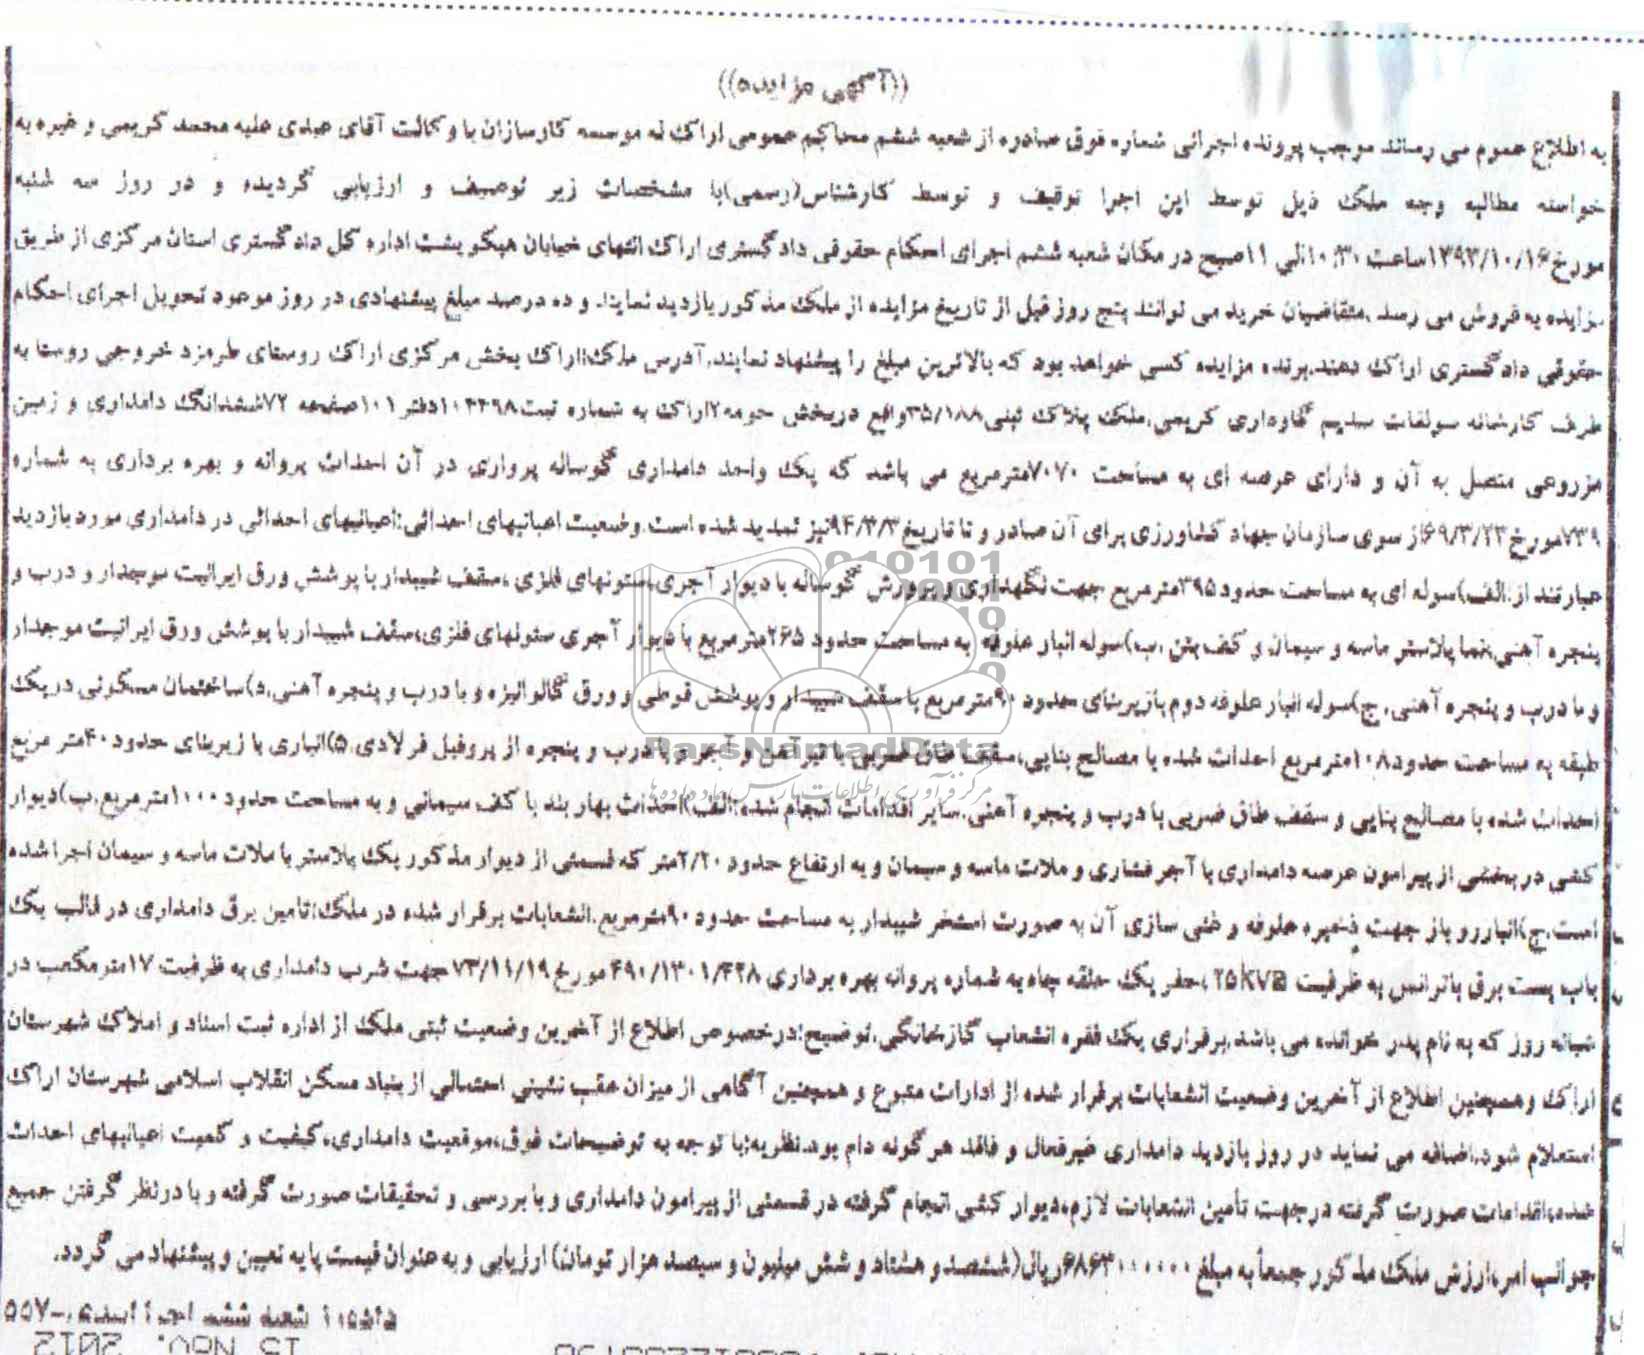 ((آگهی مزایده))
به اطلاع عموم می رساند موجب پرونده اجرائی شماره فوق صادره از شعبه ششم محاکم عمومی اراک له موسسه کارسازان با وکالت آقای عبدی علیه محمد کریمی و غیره به
خواسته مطالبه وجه ملک ذیل توسط این اجرا توقیف و توسط کارشناس(رسمی)با مشخصات زیر توصیف و ارزیابی گردیده و در روز سه شنبه
مورخ۱۳۹۳/۱۰/۱۶ساعت۱۰:۳۰الی ۱۱صبح در مکان شعبه ششم اجرای احکام حقوقی دادگستری اراک انتهای خیابان هپکو پشت اداره کل دادگستری استان مرکزی از طریق
مزایده به فروش می رسد .متقاضیان خرید می توانند پنج روز قبل از تاریخ مزایده از ملک مذکور بازدید نمایند و ده درصد مبلغ پیشنهادی در روز موعود تحویل اجرای احکام
حقوقی دادگستری اراک دهند.برنده مزایده کسی خواهد بود که بالاترین مبلغ را پیشنهاد نمایند.آدرس ملک:اراک بخش مرکزی اراک روستای طرمزد خروجی روستا به
طرف کارخانه سولفات سدیم گاوداری کریمی.ملک پلاک ثبتی۳۵/۱۸۸واقع دربخش حومه۲اراک به شماره ثبت۱۰۴۴۹۸دفتر۱۰۱صفحه ۷۲ششدانگ دامداری و زمین
مزروعی متصل به آن و دارای عرصه ای به مساحت ۷۰۷۰مترمربع می باشد که یک واحد دامداری گوساله پرواری در آن احداث پروانه و بهره برداری به شماره
۷۳۹مورخ۶۹/۳/۲۳از سوی سازمان جهاد کشاورزی برای آن صادر و تا تاریخ۹۴/۳/۳نیز تمدید شده است.وضعیت اعیانیهای احداثی:اعیانیهای احداثی در دامداری مورد بازدید
عبارتند از:الف)سوله ای به مساحت حدود۳۹۵مترمربع جهت نگهداری و پرورش گوساله با دیوار آجری،ستونهای فلزی ،سقف شیبدار با پوشش ورق ایرانیت موجدار و درب و
پنجره آهنی،نما پلاستر ماسه و سیمان و کف بتن .ب)سوله انبار علوفه به مساحت حدود ۲۶۵مترمربع با دیوار آجری ستونهای فلزی،سقف شیبدار با پوشش ورق ایرانیت موجدار
و با درب و پنجره آهنی. ج)سوله انبار علوفه دوم بازیربنای حدود ۹۰مترمربع با سقف شیبدار و پوشش قوطی و ورق گالوانیزه و با درب و پنجره آهنی.د)ساختمان مسکونی در یک
طبقه به مساحت حدود۱۰۸مترمربع احداث شده با مصالح بنایی،سقف طاق ضربی با تیر آهن و آجر و با درب و پنجره از پروفیل فولادی.ه)انباری با زیربنای حدود۴۰متر مربع
احداث شده با مصالح بنایی و سقف طاق ضربی با درب و پنجره آهنی.سایر اقدامات انجام شده:الف)احداث بهار بند با کف سیمانی و به مساحت حدود۱۰۰۰مترمربع.ب)دیوار
کشی در بخشی از پیرامون عرصه دامداری با آجر فشاری و ملات ماسه و سیمان و به ارتفاع حدود ۲/۲۰متر که قسمتی از دیوار مذکور یک پلاستر با ملات ماسه و سیمان اجرا شده
است.ج)انباررو باز جهت ذخیره علوفه و غنی سازی آن به صورت استخر شیبدار به مساحت حدود۹۰مترمربع.انشعابات برقرار شده در ملک:تامین برق دامداری در قالب یک
باب پست برق باترانس به ظرفیت ۲۵kva ،حفر یک حلقه چاه به شماره پروانه بهره برداری ۴۹۰/۱۳۰۱/۴۲۸مورخ۷۳/۱۱/۱۹جهت شرب دامداری به ظرفیت ۱۷مترمکعب در
شبانه روز که به نام پدر خوانده می باشد.برقراری یک فقره انشعاب گازخانگی.توضیح:درخصوص اطلاع از آخرین وضعیت ثبتی ملک از اداره ثبت اسناد و املاک شهرستان
اراک و همچنین اطلاع از آخرین وضعیت انشعابات برقرار شده از ادارات متبوع و همچنین آگاهی از میزان عقب نشینی احتمالی از بنیاد مسکن انقلاب اسلامی شهرستان اراک
استعلام شود.اضافه می نماید در روز بازدید دامداری غیرفعال و فاقد هرگونه دام بود.نظریه:با توجه به توضیحات فوق،موقعیت دامداری،کیفیت و کمیت اعیانیهای احداث
شده،اقدامات صورت گرفته درجهت تأمین انشعابات لازم،دیوار کشی انجام گرفته در قسمتی از پیرامون دامداری و با بررسی و تحقیقات صورت گرفته و با درنظر گرفتن جمیع
جوانب امر،ارزش ملک مذکور جمعاً به مبلغ ۶۸۶۳۰۰۰۰۰۰ریال(ششصد و هشتاد و شش میلیون و سیصد هزار تومان) ارزیابی و به عنوان قیمت پایه تعیین و پیشنهاد می گردد.
ParsNamadData
مرکز فرآوری اطلاعات پارس نماد داده ها